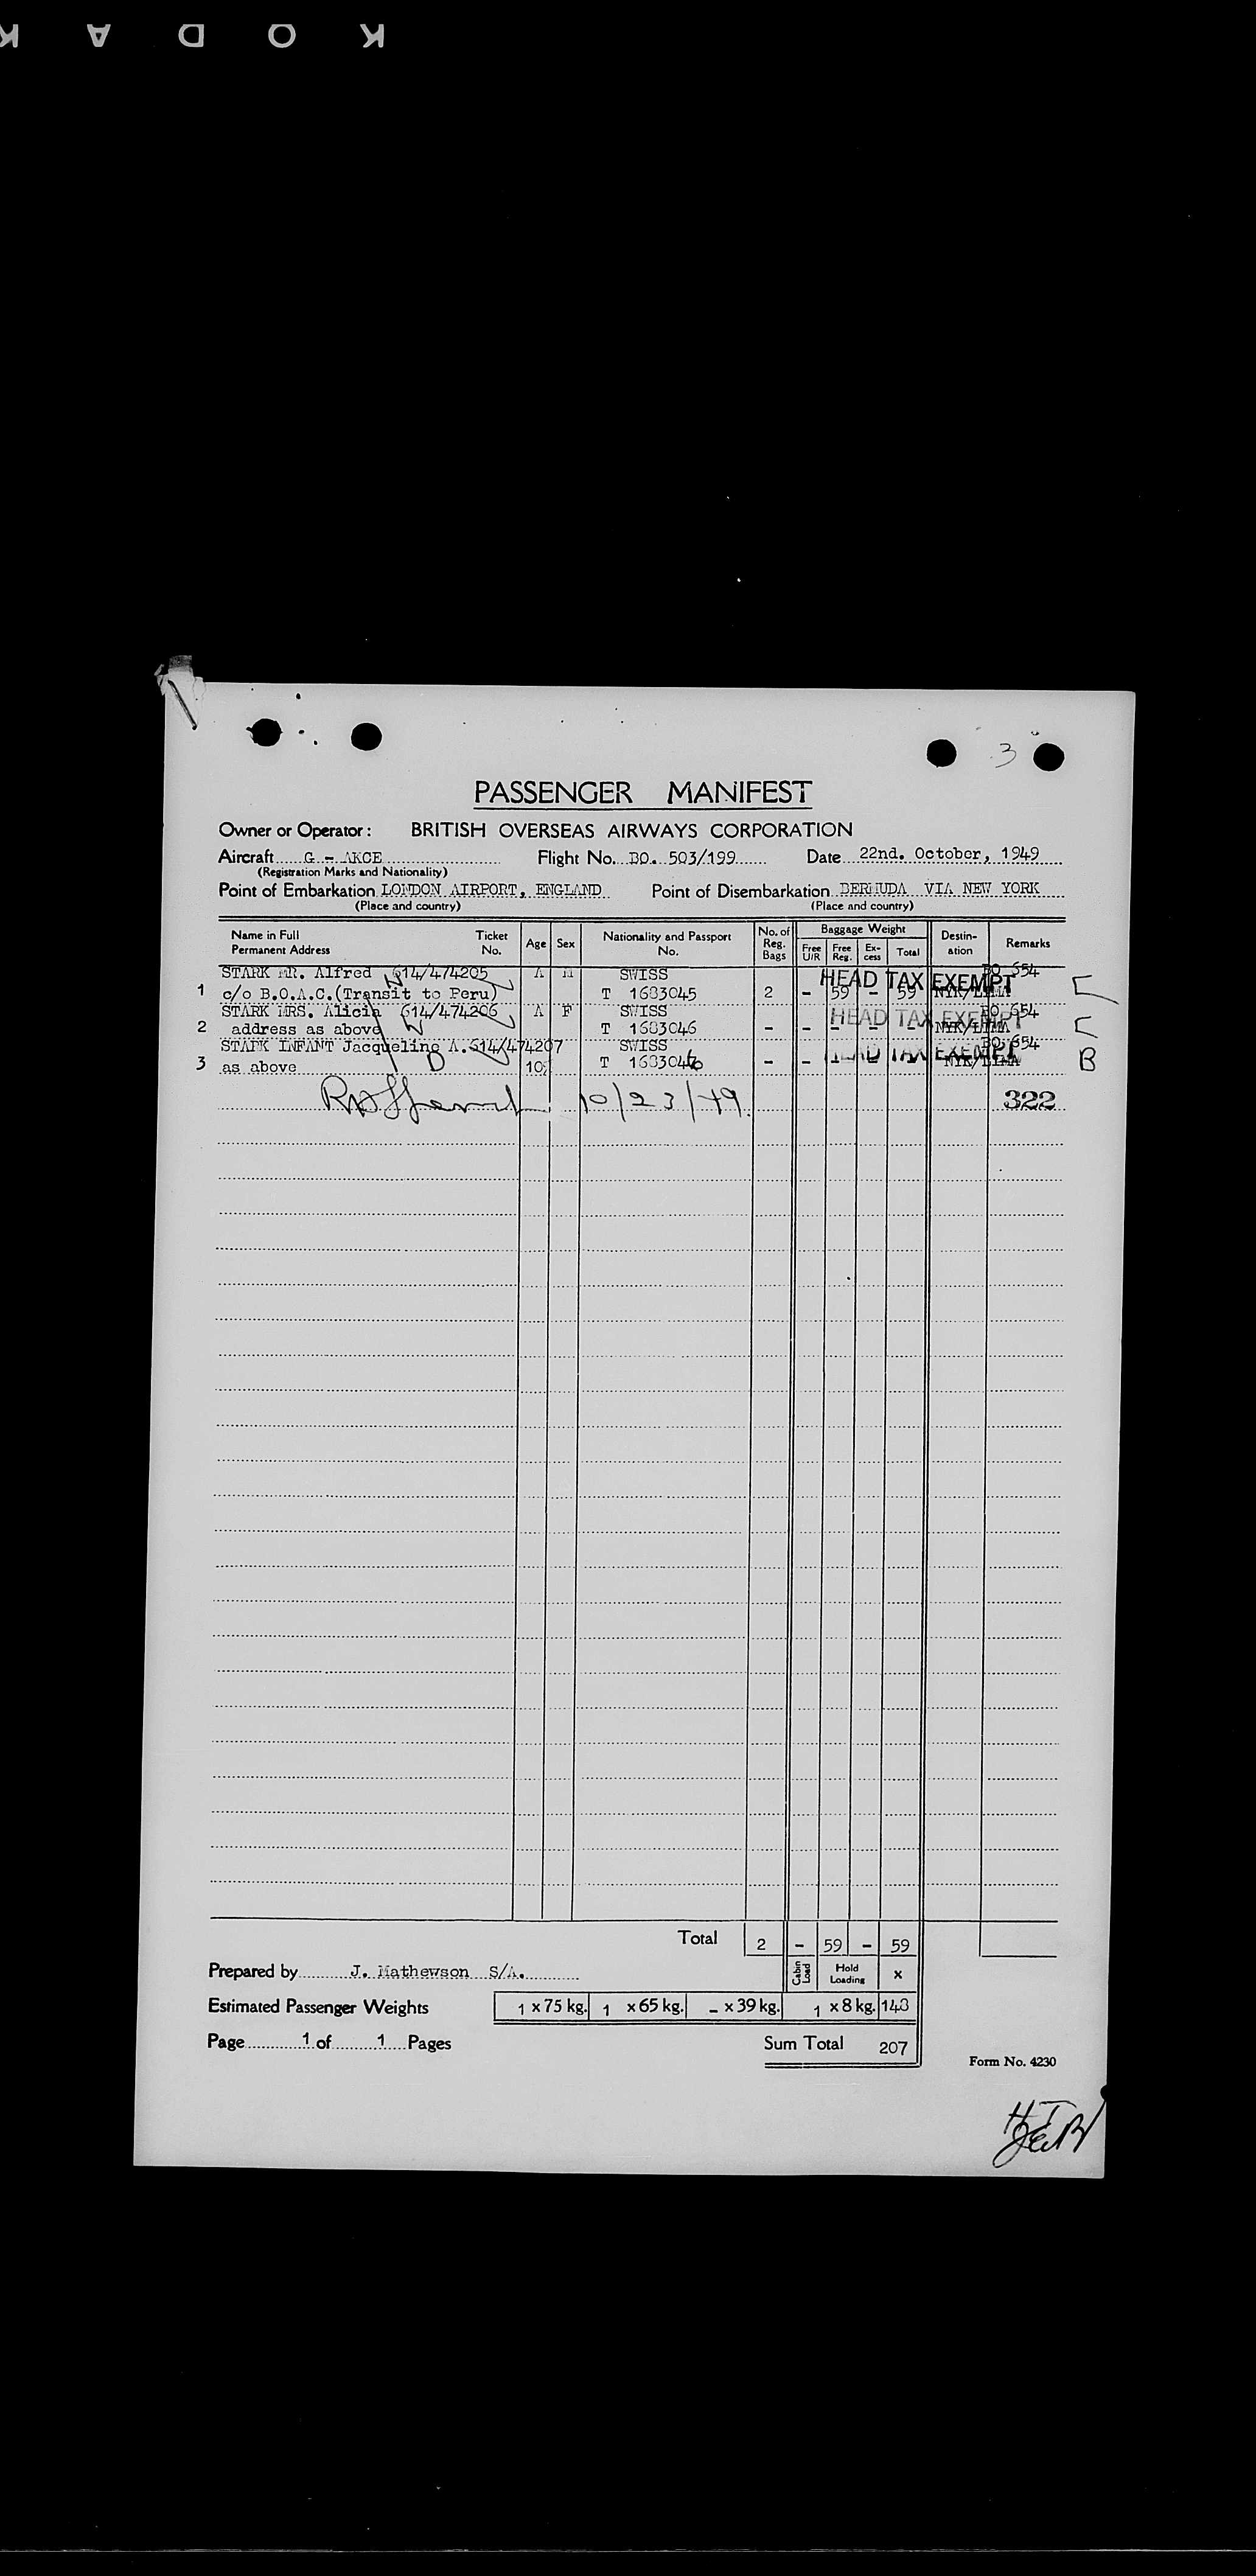 KODAK
3
PASSENGER MANIFEST
Owner or Operator: BRITISH OVERSEAS AIRWAYS CORPORATION
Aircraft G - AKCE Flight No. BO. 503/199 Date 22nd. October, 1949
(Registration Marks and Nationality)
Point of Embarkation LONDON AIRPORT, ENGLAND Point of Disembarkation BERMUDA VIA NEW YORK
(Place and country) (Place and country)
Name in Full Permanent Address Ticket No. Age Sex Nationality and Passport No. No. of Reg. Bags Baggage Weight Free U/R Free Reg. Ex-cess Total Destin-ation Remarks
STARK MR. Alfred 614/474205 A M SWISS HEAD TAX EXEMPT BO 654
1 c/o B.O.A.C.(Transit to Peru) T 1683045 2 - 59 - 59 NYK/LIMA
STARK MRS. Alicia 614/474206 A F SWISS HEAD TAX EXEMPT BO 654
2 address as above T 1683046 - - - - - NYK/LIMA
STARK INFANT Jacqueline A. 614/474207 SWISS HEAD TAX EXEMPT BO 654
3 as above T 1683046 - - NYK/LIMA B
10/23/49 322
Total 2 - 59 - 59
Prepared by J. Mathewson S/A. Cabin Load Hold Loading x
Estimated Passenger Weights 1 x 75 kg. 1 x 65 kg. - x 39 kg. 1 x 8 kg. 148
Page 1 of 1 Pages Sum Total 207
Form No. 4230